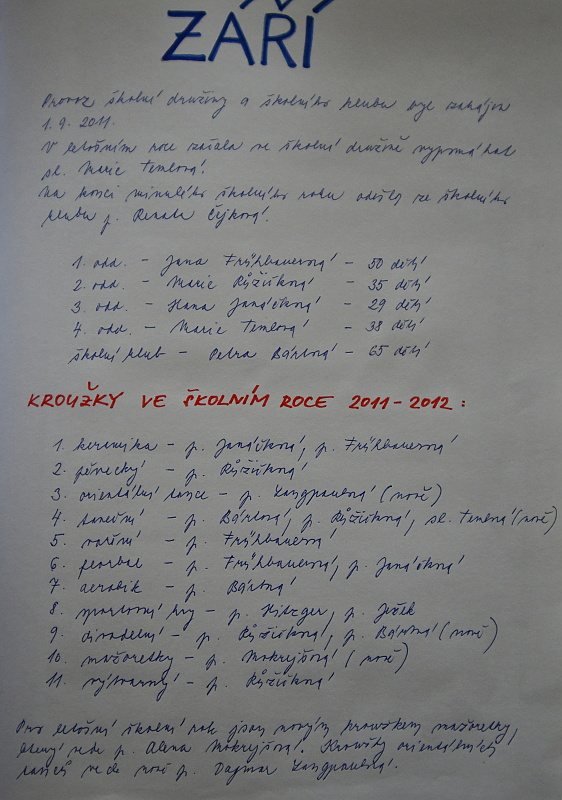 ZÁŘÍ
Provoz školní družiny a školního klubu byl zahájen
1.9.2011.
V letošním roce začala ve školní družině vypomáhat
sl. Marie Temlová.
Na konci minulého školního roku odešla ze školního
klubu p. Renata Čejková.
1. odd. - Jana Frühbauerová - 50 dětí
2. odd. - Marie Růžičková - 35 dětí
3. odd. - Hana Janáčková - 29 dětí
4. odd. - Marie Temlová - 38 dětí
školní klub - Petra Bártová - 65 dětí
KROUŽKY VE ŠKOLNÍM ROCE 2011-2012:
1. keramika - p. Janáčková, p. Frühbauerová
2. pěvecký - p. Růžičková
3. orientální tance - p. Langpaulová (nově)
4. taneční - p. Bártová, p. Růžičková, sl. Temlová (nově)
5. vaření - p. Frühbauerová
6. florbal - p. Frühbauerová, p. Janáčková
7. aerobik - p. Bártová
8. sportovní hry - p. Hitzger, p. Ježek
9. divadelní - p. Růžičková, p. Bártová (nově)
10. mažoretky - p. Mokrejšová (nově)
11. výtvarný - p. Růžičková
Pro letošní školní rok jsou novým kroužkem mažoretky,
který vede p. Alena Mokrejšová. Kroužky orientálních
tanců vede nově p. Dagmar Langpaulová.